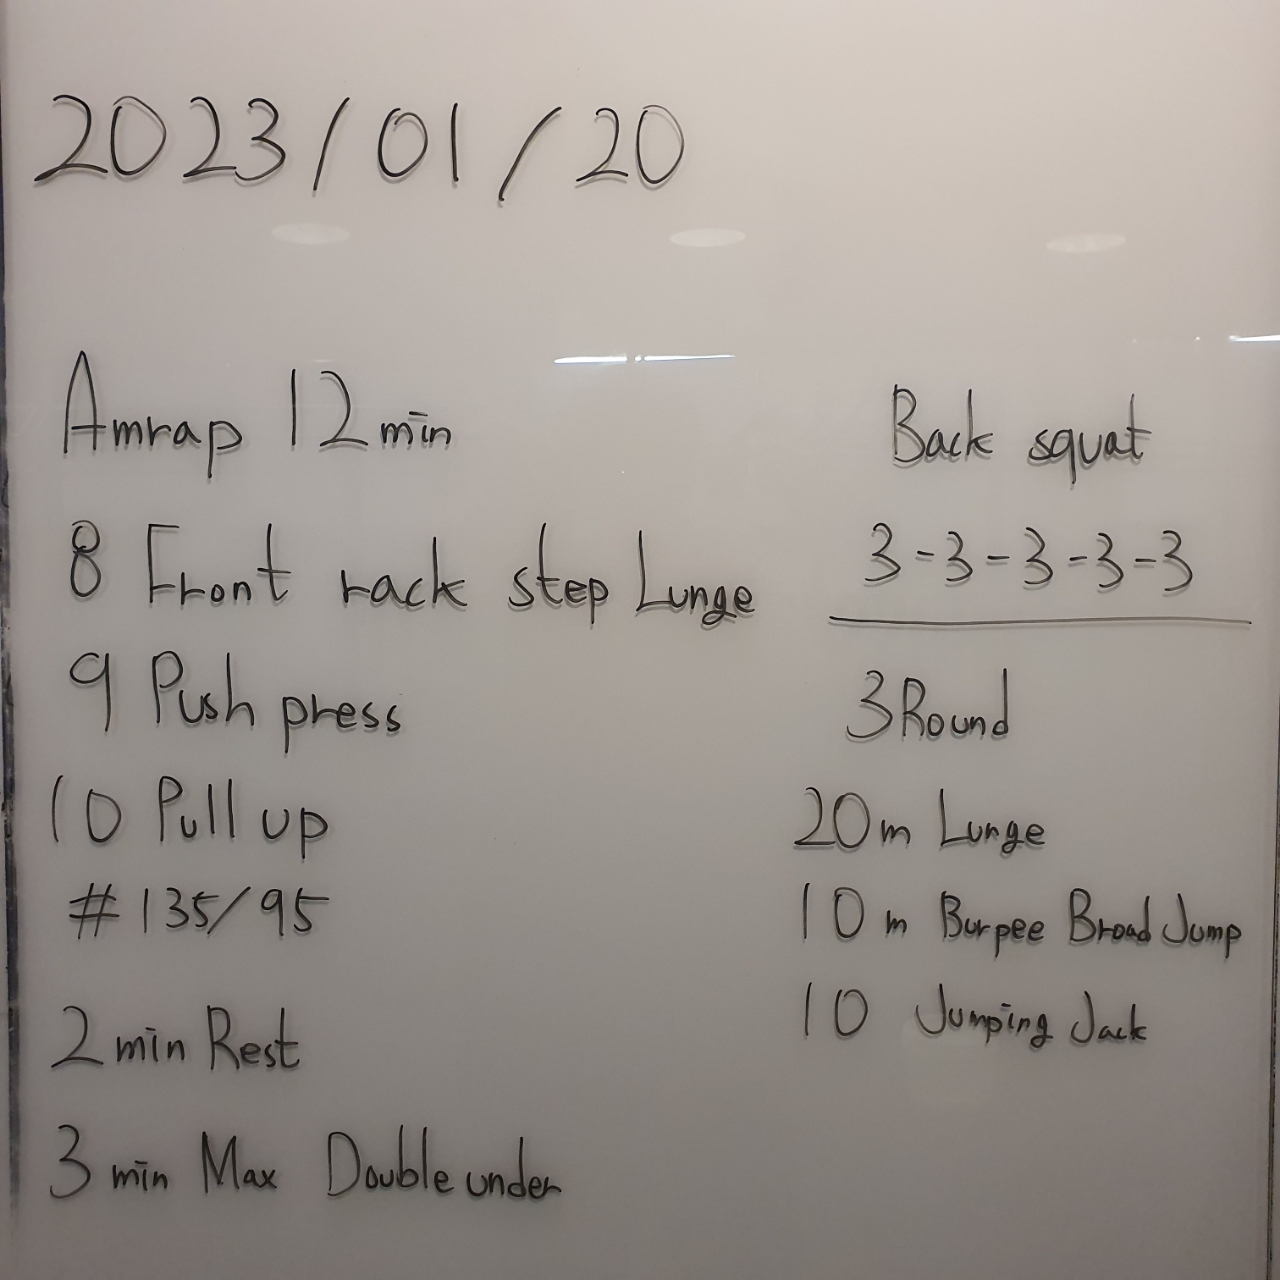 2023/01/20
Amrap 12min
8 Front rack step Lunge
9 Push press
10 Pull up
#135/95
2 min Rest
3 min Max Double under
Back squat
3-3-3-3-3
3Round
20m Lunge
10m Burpee Broad Jump
10 Jumping Jack